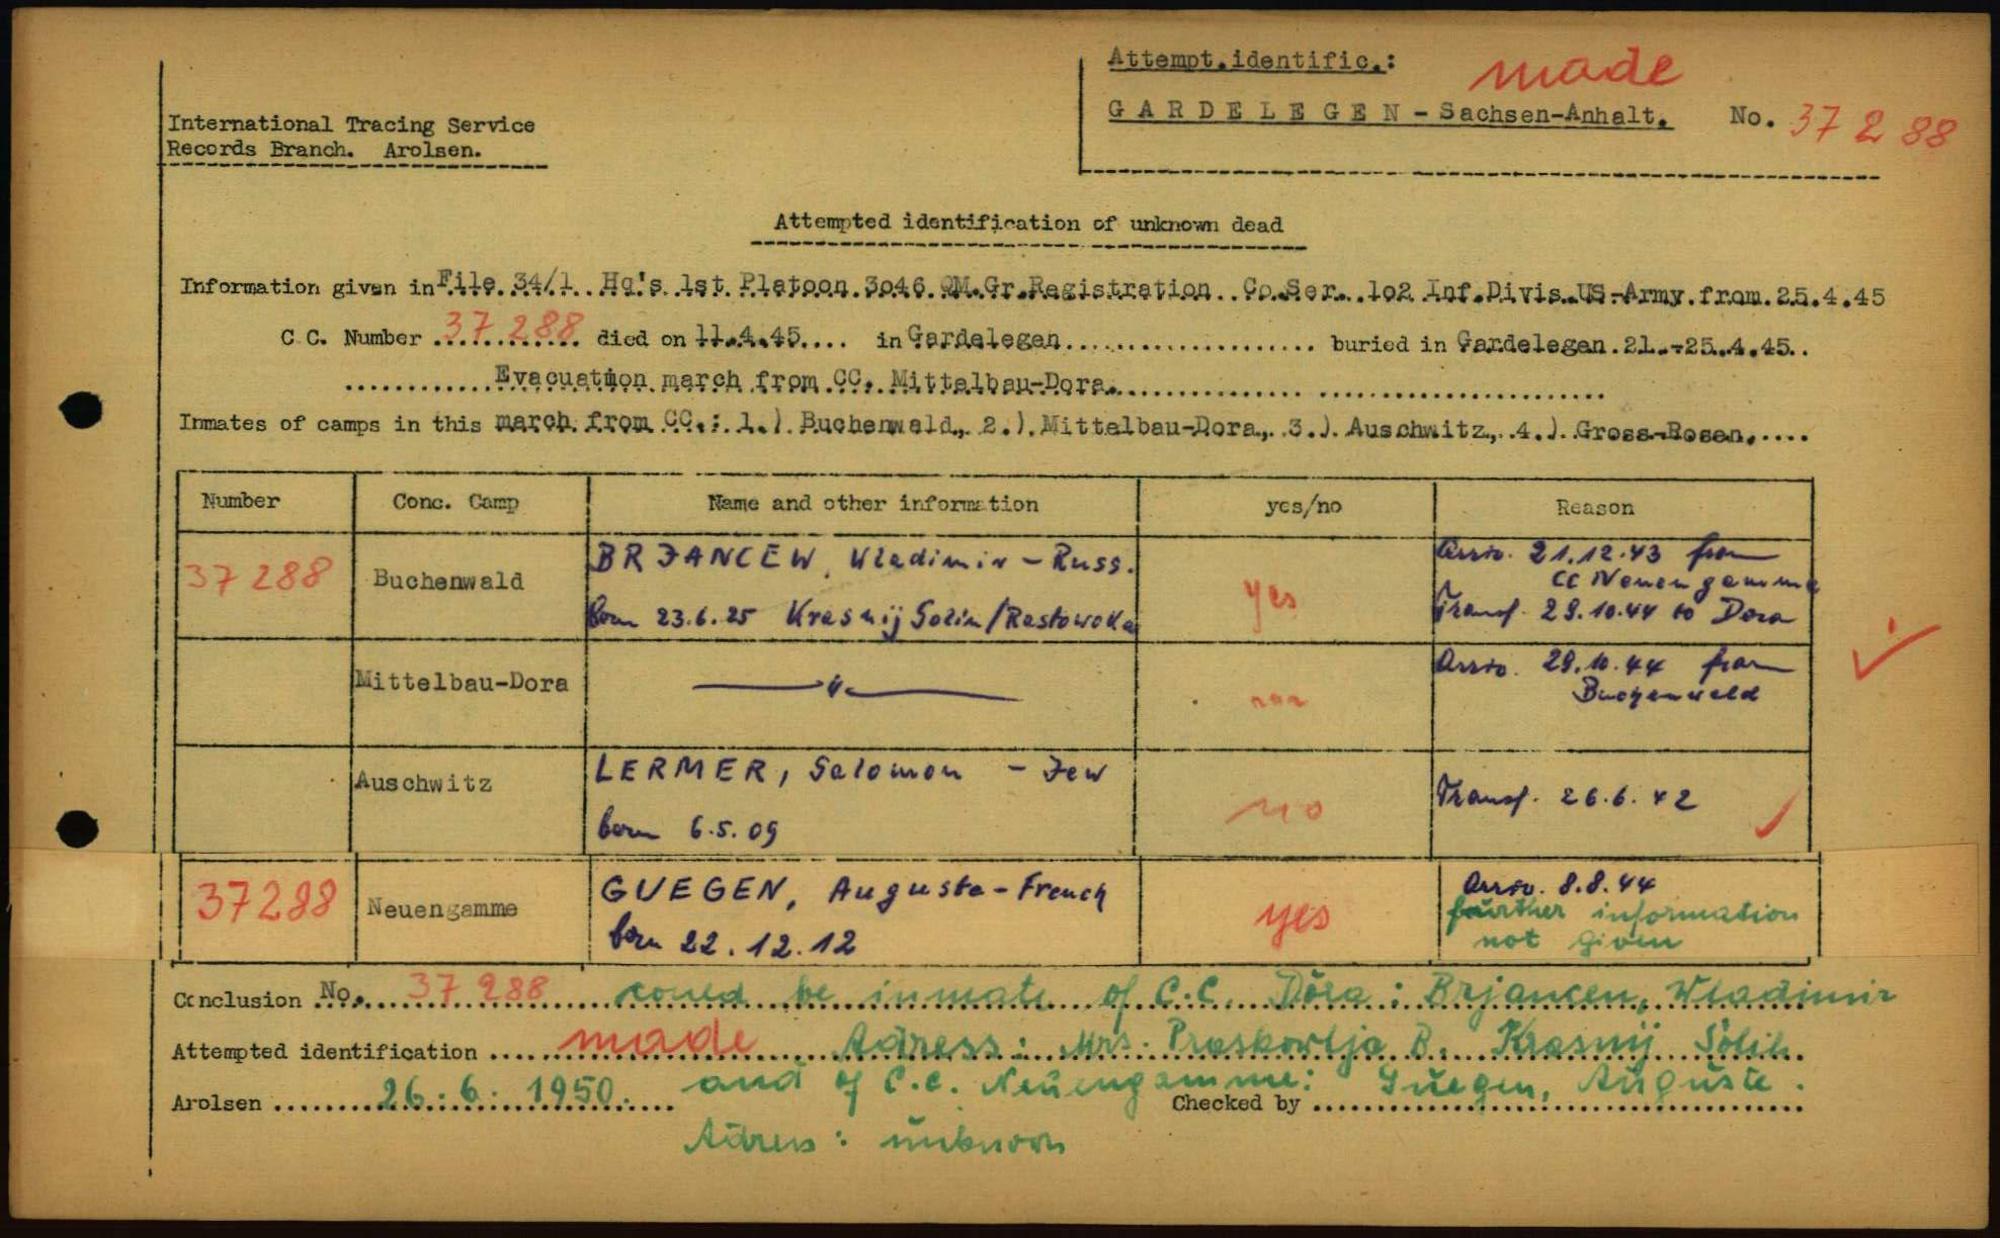 Attempt.identific.: made
GARDELEGEN - Sachsen-Anhalt. No. 37 288
International Tracing Service
Records Branch. Arolsen.
Attempted identification of unknown dead
Information given in File 34/1 Hq's 1st Platoon 3046 QM.Gr.Registration Co.Ser. 102 Inf.Divis.US-Army from 25.4.45
C.C. Number 37 288 died on 11.4.45.... in Gardelegen........ buried in Gardelegen.21.-25.4.45..
Evacuation march from CC. Mittelbau-Dora.
Inmates of camps in this march from CC.: 1.) Buchenwald, 2.) Mittelbau-Dora, 3.) Auschwitz, 4.) Gross-Rosen.
Number Conc. Camp Name and other information yes/no Reason
37 288 Buchenwald BRJANCEW, Wladimir - Russ. yes Arriv. 21.12.43 from
CC Neuengamme
born 23.6.25 Krasnij Solin/Rostowska Transf. 29.10.44 to Dora
Mittelbau-Dora —"— Arriv. 29.10.44 from
Buchenwald
Auschwitz LERMER, Salomon - Jew no Transf. 26.6.42
born 6.5.09
37288 Neuengamme GUEGEN, Auguste - French yes Arriv. 8.8.44
born 22.12.12 further information
not given
Conclusion No. 37 288 could be inmate of C.C. Dora: Brjancew, Wladimir
Attempted identification made Adress: Mrs. Praskowija B. Krasnij Solin
Arolsen 26.6.1950. and of C.C. Neuengamme: Guegen, Auguste.
Checked by
Adress: unknown